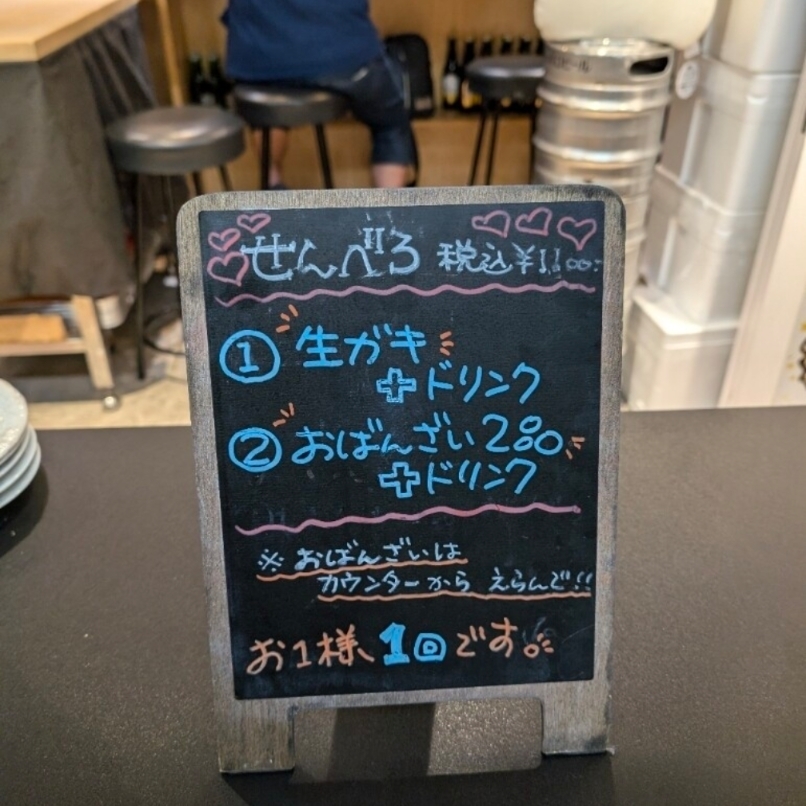 せんべろ 税込¥1,100-
① 生ガキ
+ドリンク
② おばんざい2品
+ドリンク
※ おばんざいは
カウンターから えらんで!!
お1様、1回です。